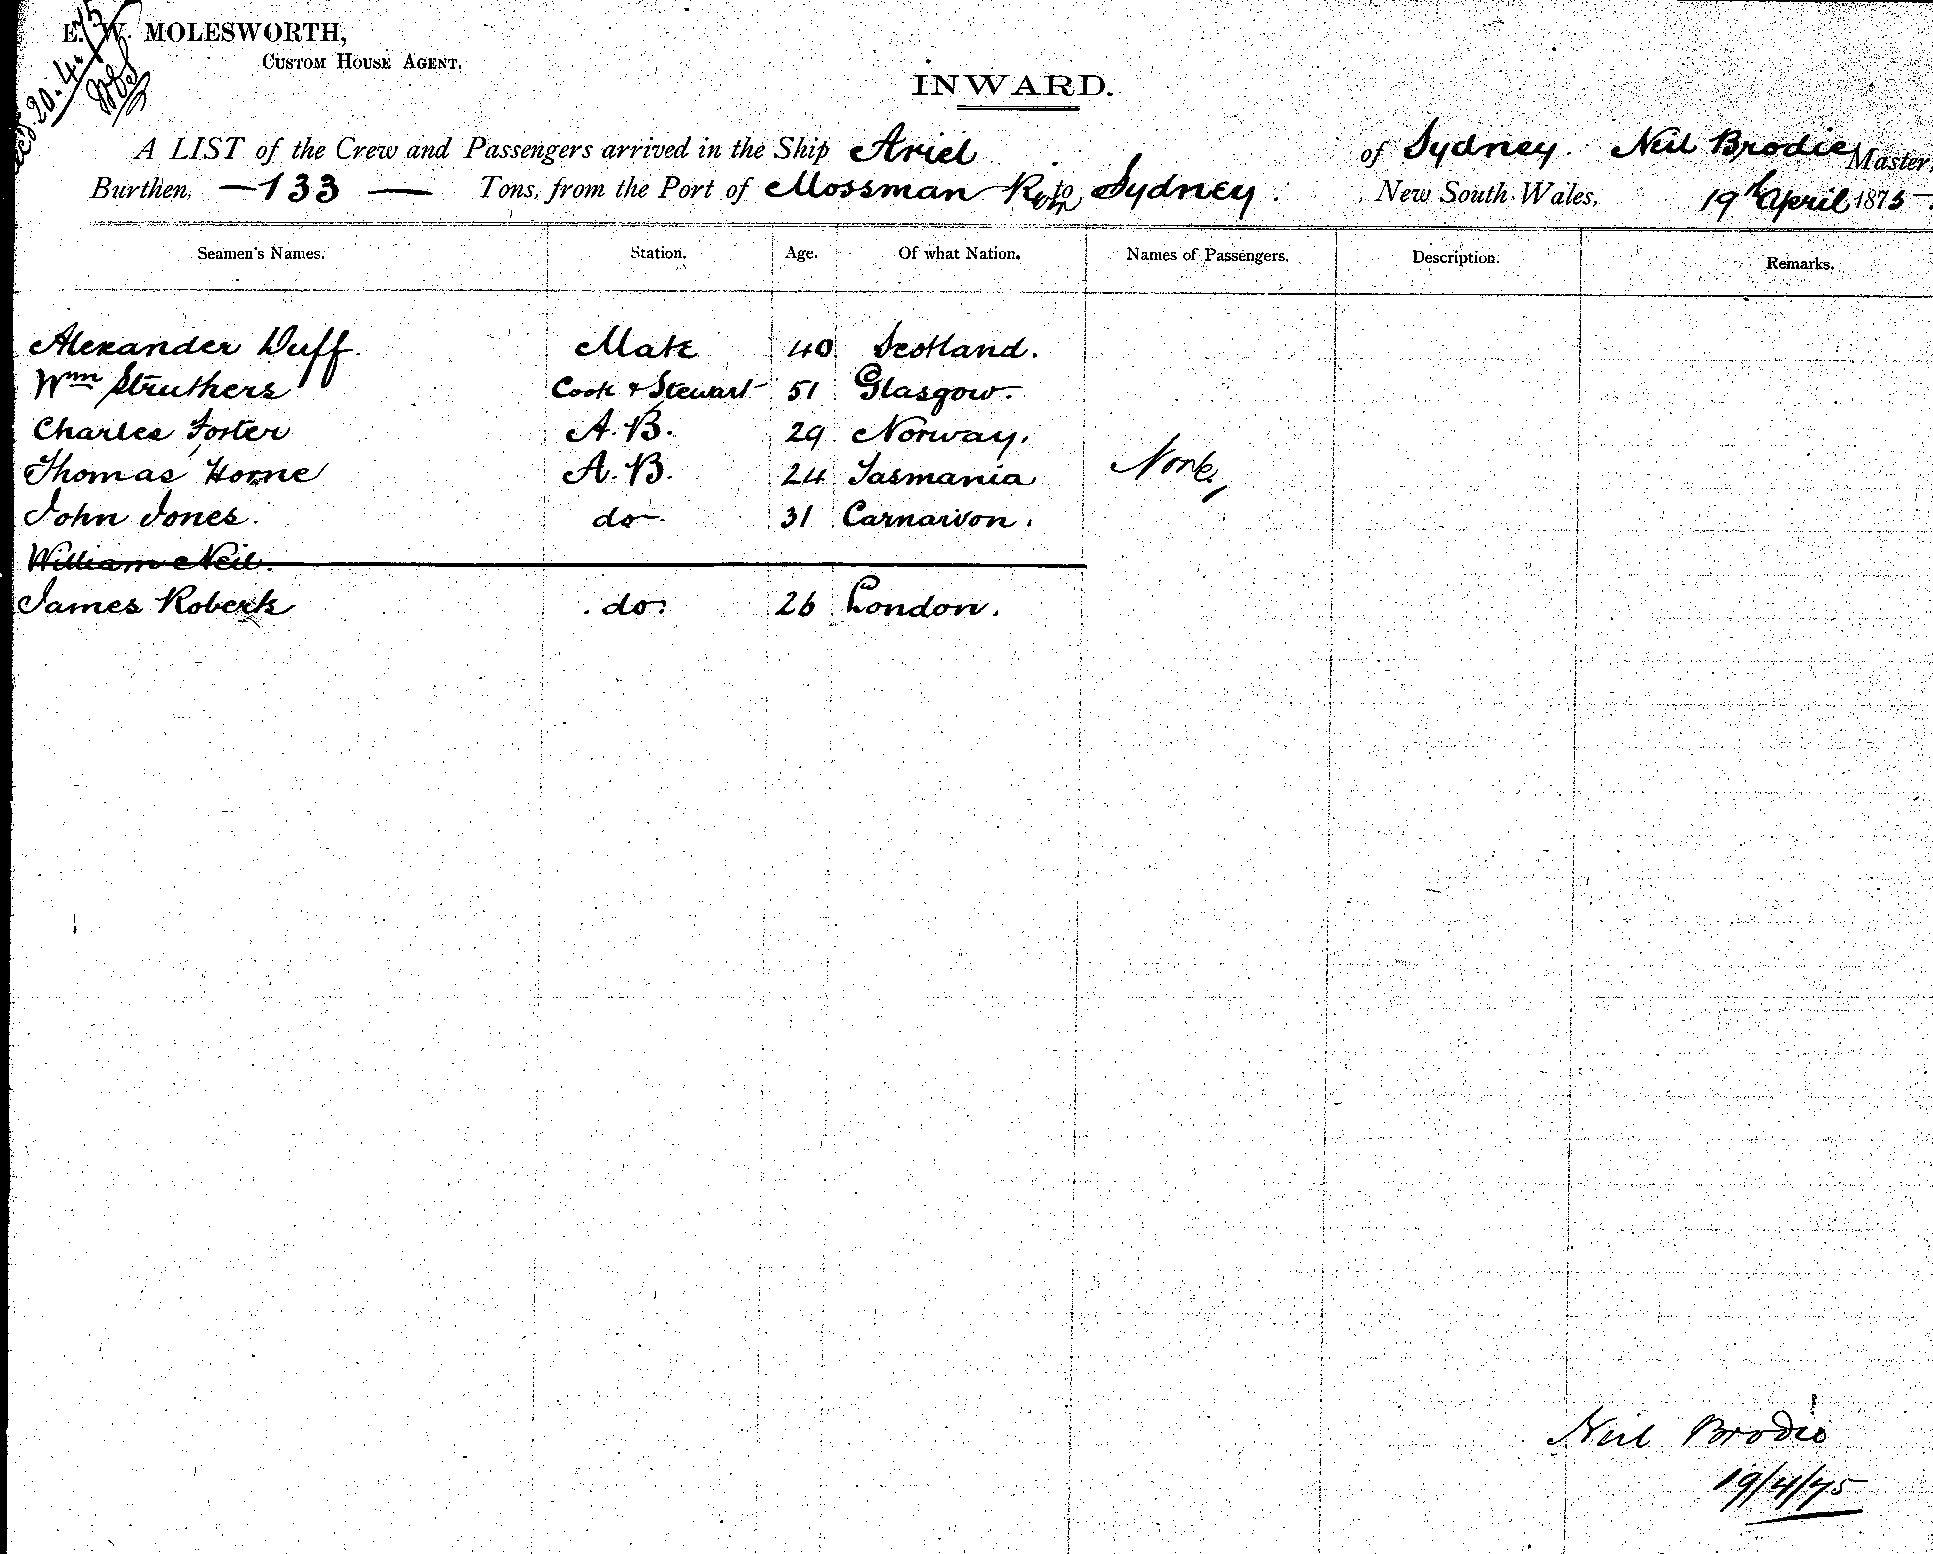 E. W. MOLESWORTH,
CUSTOM HOUSE AGENT.
20.4.75
INWARD.
A LIST of the Crew and Passengers arrived in the Ship Ariel of Sydney Neil Brodie Master,
Burthen, — 133 — Tons, from the Port of Mossman to Sydney. New South Wales, 19th April 1875
Seamen's Names. Station. Age. Of what Nation. Names of Passengers. Description. Remarks.
Alexander Duff. Mate 40 Scotland.
Wm Struthers Cook & Stewart 51 Glasgow.
Charles Foster A.B. 29 Norway.
Thomas Horne A.B. 24 Tasmania None
John Jones. do 31 Carnarvon.
William Neil.
James Roberts do. 26 London.
Neil Brodie
19/4/75